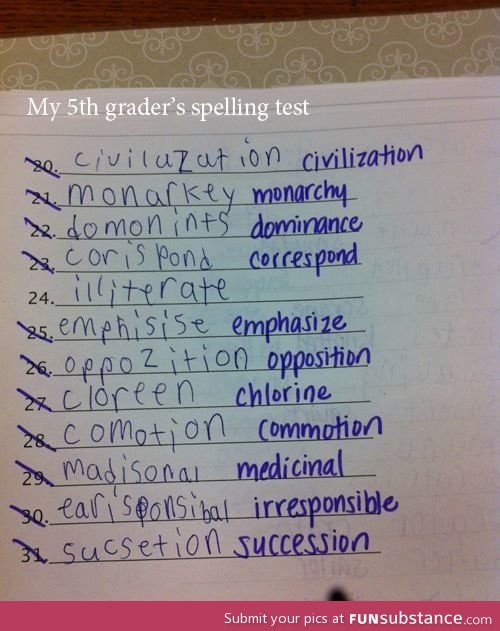 My 5th grader's spelling test
20. civiluzution civilization
21. monarkey monarchy
22. domonints dominance
23. corispond correspond
24. illiterate
25. emphisise emphasize
26. oppozition opposition
27. cloreen chlorine
28. comotion commotion
29. madisonal medicinal
30. earisponsibal irresponsible
31. sucsetion succession
Submit your pics at FUNsubstance.com